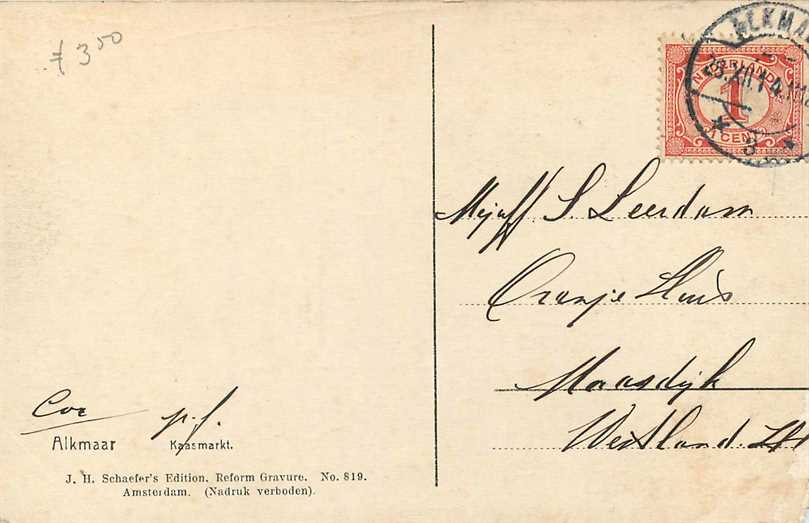 ƒ 3 50
ALKMAA
NEDERLAND
1
1 CENT
3
Mejuff S. Leerdam
Oranje Huis
Maasdijk
Westland. ZH
Cor p.f.
Alkmaar Kaasmarkt.
J. H. Schaefer's Edition. Reform Gravure. No. 819.
Amsterdam. (Nadruk verboden).